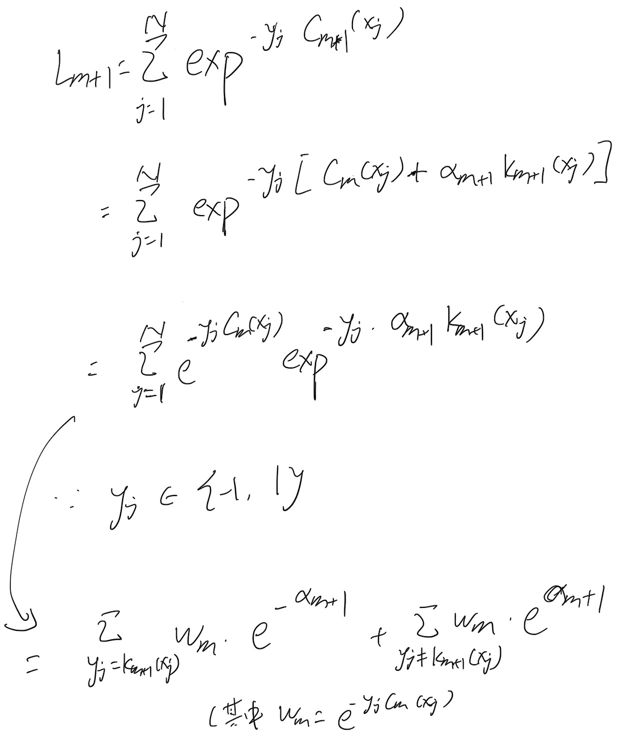 L_{m+1} = \sum_{j=1}^{N} exp^{-y_j C_{m+1}(x_j)}
= \sum_{j=1}^{N} exp^{-y_j [C_m(x_j) + α_{m+1} k_{m+1}(x_j)]}
= \sum_{j=1}^{N} e^{-y_j C_m(x_j)} exp^{-y_j · α_{m+1} k_{m+1}(x_j)}
∵ y_j ∈ {-1, 1}
= \sum_{y_j = k_{m+1}(x_j)} w_m · e^{-α_{m+1}} + \sum_{y_j ≠ k_{m+1}(x_j)} w_m · e^{α_{m+1}}
(其中 w_m = e^{-y_j C_m(x_j)}